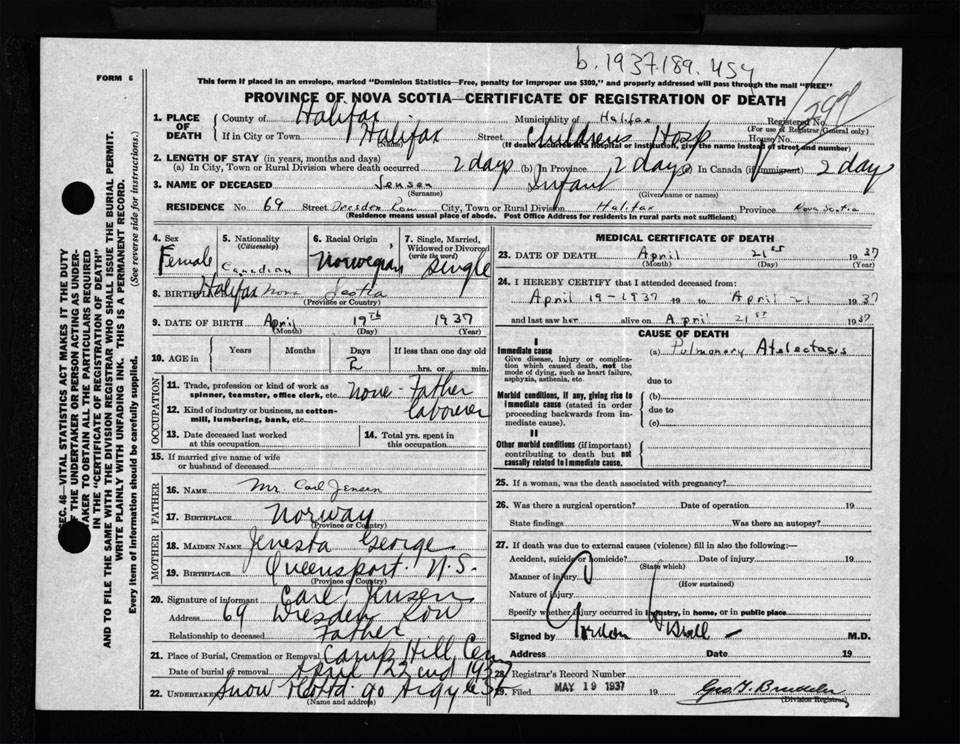 b. 1937.189.454
FORM 6
This form if placed in an envelope, marked "Dominion Statistics—Free, penalty for improper use $300," and properly addressed will pass through the mail "FREE"
PROVINCE OF NOVA SCOTIA—CERTIFICATE OF REGISTRATION OF DEATH
1. PLACE OF DEATH
County of Halifax Municipality of Halifax Registered No.
(For use of Registrar General only)
If in City or Town Halifax Street Childrens Hosp House No.
(Name) (If death occurred in a hospital or institution, give the name instead of street and number)
2. LENGTH OF STAY (in years, months and days)
(a) In City, Town or Rural Division where death occurred 2 days (b) In Province 2 days (c) In Canada (if immigrant) 2 day
3. NAME OF DECEASED Jensen Infant
(Surname) (Given name or names)
RESIDENCE No 69 Street Dresden Row City, Town or Rural Division Halifax Province Nova Scotia
(Residence means usual place of abode. Post Office Address for residents in rural parts not sufficient)
4. Sex Female
5. Nationality (Citizenship) Canadian
6. Racial Origin Norwegian
7. Single, Married, Widowed or Divorced (write the word) Single
8. BIRTHPLACE Halifax Nova Scotia
(Province or Country)
9. DATE OF BIRTH April 19th 1937
(Month) (Day) (Year)
10. AGE in Years Months Days 2 If less than one day old hrs. or min.
OCCUPATION
11. Trade, profession or kind of work as spinner, teamster, office clerk, etc. none - Father
12. Kind of industry or business, as cotton-mill, lumbering, bank, etc. laborer
13. Date deceased last worked at this occupation
14. Total yrs. spent in this occupation
15. If married give name of wife or husband of deceased
FATHER
16. NAME Mr Carl Jensen
17. BIRTHPLACE Norway
(Province or Country)
MOTHER
18. MAIDEN NAME George
19. BIRTHPLACE Queensport. N.S.
(Province or Country)
20. Signature of informant Carl Jensen
Address 69 Dresden Row
Relationship to deceased Father
21. Place of Burial, Cremation or Removal Camp Hill Cem
Date of burial or removal April 22nd 1937
22. UNDERTAKER Snow 90 Argyle St
(Name and address)
MEDICAL CERTIFICATE OF DEATH
23. DATE OF DEATH April 21st 1937
(Month) (Day) (Year)
24. I HEREBY CERTIFY that I attended deceased from:
April 19-1937 19 to April 21 1937
and last saw her alive on April 21st 1937
CAUSE OF DEATH
I
Immediate cause (a) Pulmonary Atelectasis
Give disease, injury or complication which caused death, not the mode of dying, such as heart failure, asphyxia, asthenia, etc.
due to
Morbid conditions, if any, giving rise to immediate cause (stated in order proceeding backwards from immediate cause).
(b)
due to
(c)
II
Other morbid conditions (if important) contributing to death but not causally related to immediate cause.
25. If a woman, was the death associated with pregnancy?
26. Was there a surgical operation? Date of operation 19
State findings Was there an autopsy?
27. If death was due to external causes (violence) fill in also the following:—
Accident, suicide or homicide? Date of injury 19
(State which)
Manner of injury
(How sustained)
Nature of injury
Specify whether injury occurred in industry, in home, or in public place
Signed by Gordon M.D.
Address Date 19
28. Registrar's Record Number
29. Filed MAY 19 1937 19
(Division Registrar)
SEC. 46—VITAL STATISTICS ACT MAKES IT THE DUTY
OF THE UNDERTAKER OR PERSON ACTING AS UNDERTAKER TO OBTAIN ALL THE PARTICULARS REQUIRED
IN THE "CERTIFICATE OF REGISTRATION OF DEATH"
AND TO FILE THE SAME WITH THE DIVISION REGISTRAR WHO SHALL ISSUE THE BURIAL PERMIT.
WRITE PLAINLY WITH UNFADING INK. THIS IS A PERMANENT RECORD.
Every item of information should be carefully supplied. (See reverse side for instructions.)